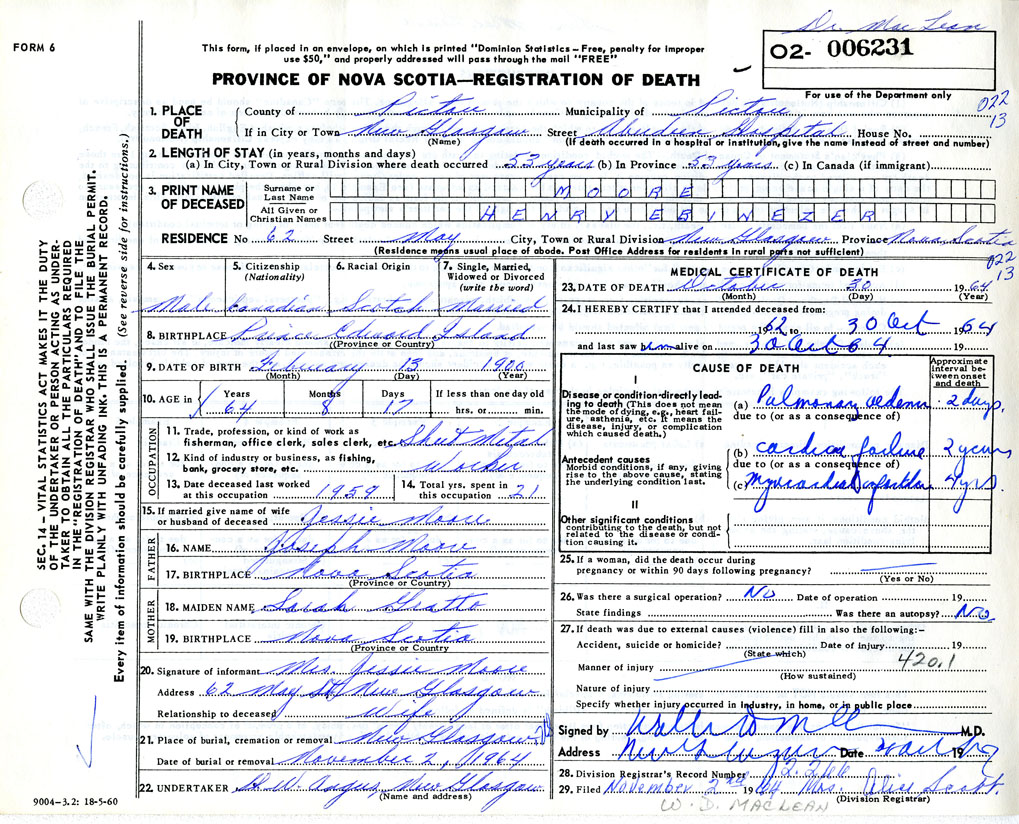 Dr. MacLean
FORM 6
This form, if placed in an envelope, on which is printed "Dominion Statistics – Free, penalty for improper
use $50," and properly addressed will pass through the mail "FREE"
O2- 006231
PROVINCE OF NOVA SCOTIA—REGISTRATION OF DEATH
For use of the Department only
022
13
1. PLACE OF DEATH
County of Pictou Municipality of Pictou
If in City or Town New Glasgow Street Aberdeen Hospital House No.
(Name) (If death occurred in a hospital or institution, give the name instead of street and number)
2. LENGTH OF STAY (in years, months and days)
(a) In City, Town or Rural Division where death occurred 53 years (b) In Province 53 years (c) In Canada (if immigrant)
3. PRINT NAME OF DECEASED
Surname or Last Name MOORE
All Given or Christian Names HENRY EBINEZER
RESIDENCE No 62 Street May City, Town or Rural Division New Glasgow Province Nova Scotia
(Residence means usual place of abode. Post Office Address for residents in rural parts not sufficient)
022
13
4. Sex 5. Citizenship (Nationality) 6. Racial Origin 7. Single, Married, Widowed or Divorced (write the word)
Male Canadian Scotch Married
8. BIRTHPLACE Prince Edward Island
(Province or Country)
9. DATE OF BIRTH February 13 1900
(Month) (Day) (Year)
10. AGE in Years Months Days If less than one day old
64 8 17 hrs. or min.
OCCUPATION
11. Trade, profession, or kind of work as
fisherman, office clerk, sales clerk, etc. Sheet Metal
12. Kind of industry or business, as fishing,
bank, grocery store, etc. Worker
13. Date deceased last worked at this occupation 1959 14. Total yrs. spent in this occupation 21
15. If married give name of wife
or husband of deceased Jessie Moore
FATHER
16. NAME Joseph Moore
17. BIRTHPLACE Nova Scotia
(Province or Country)
MOTHER
18. MAIDEN NAME Sarah Gratto
19. BIRTHPLACE Nova Scotia
(Province or Country)
20. Signature of informant Mrs. Jessie Moore
Address 62 May St. New Glasgow
Relationship to deceased Wife
21. Place of burial, cremation or removal New Glasgow, NS
Date of burial or removal November 2, 1964
22. UNDERTAKER H. W. Angus, New Glasgow
(Name and address)
MEDICAL CERTIFICATE OF DEATH
23. DATE OF DEATH October 30 1964
(Month) (Day) (Year)
24. I HEREBY CERTIFY that I attended deceased from:
1962 to 30 Oct 1964
and last saw him alive on 30 Oct 64 19
CAUSE OF DEATH
Approximate interval between onset and death
I
Disease or condition directly leading to death (This does not mean the mode of dying, e.g., heart failure, asthenia, etc. It means the disease, injury, or complication which caused death.)
(a) Pulmonary oedema 2 days
due to (or as a consequence of)
Antecedent causes
Morbid conditions, if any, giving rise to the above cause, stating the underlying condition last.
(b) cardiac failure 2 years
due to (or as a consequence of)
(c) Myocardial infarction 4 yrs.
II
Other significant conditions
contributing to the death, but not related to the disease or condition causing it.
25. If a woman, did the death occur during
pregnancy or within 90 days following pregnancy?
(Yes or No)
26. Was there a surgical operation? No Date of operation 19
State findings Was there an autopsy? No
27. If death was due to external causes (violence) fill in also the following:–
Accident, suicide or homicide? Date of injury 19
(State which)
Manner of injury 420.1
(How sustained)
Nature of injury
Specify whether injury occurred in industry, in home, or in public place
Signed by M.D.
Address Date 19
28. Division Registrar's Record Number
29. Filed November 2nd 1964 Mrs. Alice Scott
(Division Registrar)
W. D. MACLEAN
SEC. 14 – VITAL STATISTICS ACT MAKES IT THE DUTY
OF THE UNDERTAKER OR PERSON ACTING AS UNDER-
TAKER TO OBTAIN ALL THE PARTICULARS REQUIRED
IN THE "REGISTRATION OF DEATH" AND TO FILE THE
SAME WITH THE DIVISION REGISTRAR WHO SHALL ISSUE THE BURIAL PERMIT.
WRITE PLAINLY WITH UNFADING INK. THIS IS A PERMANENT RECORD.
Every item of information should be carefully supplied. (See reverse side for instructions.)
9004-3.2: 18-5-60